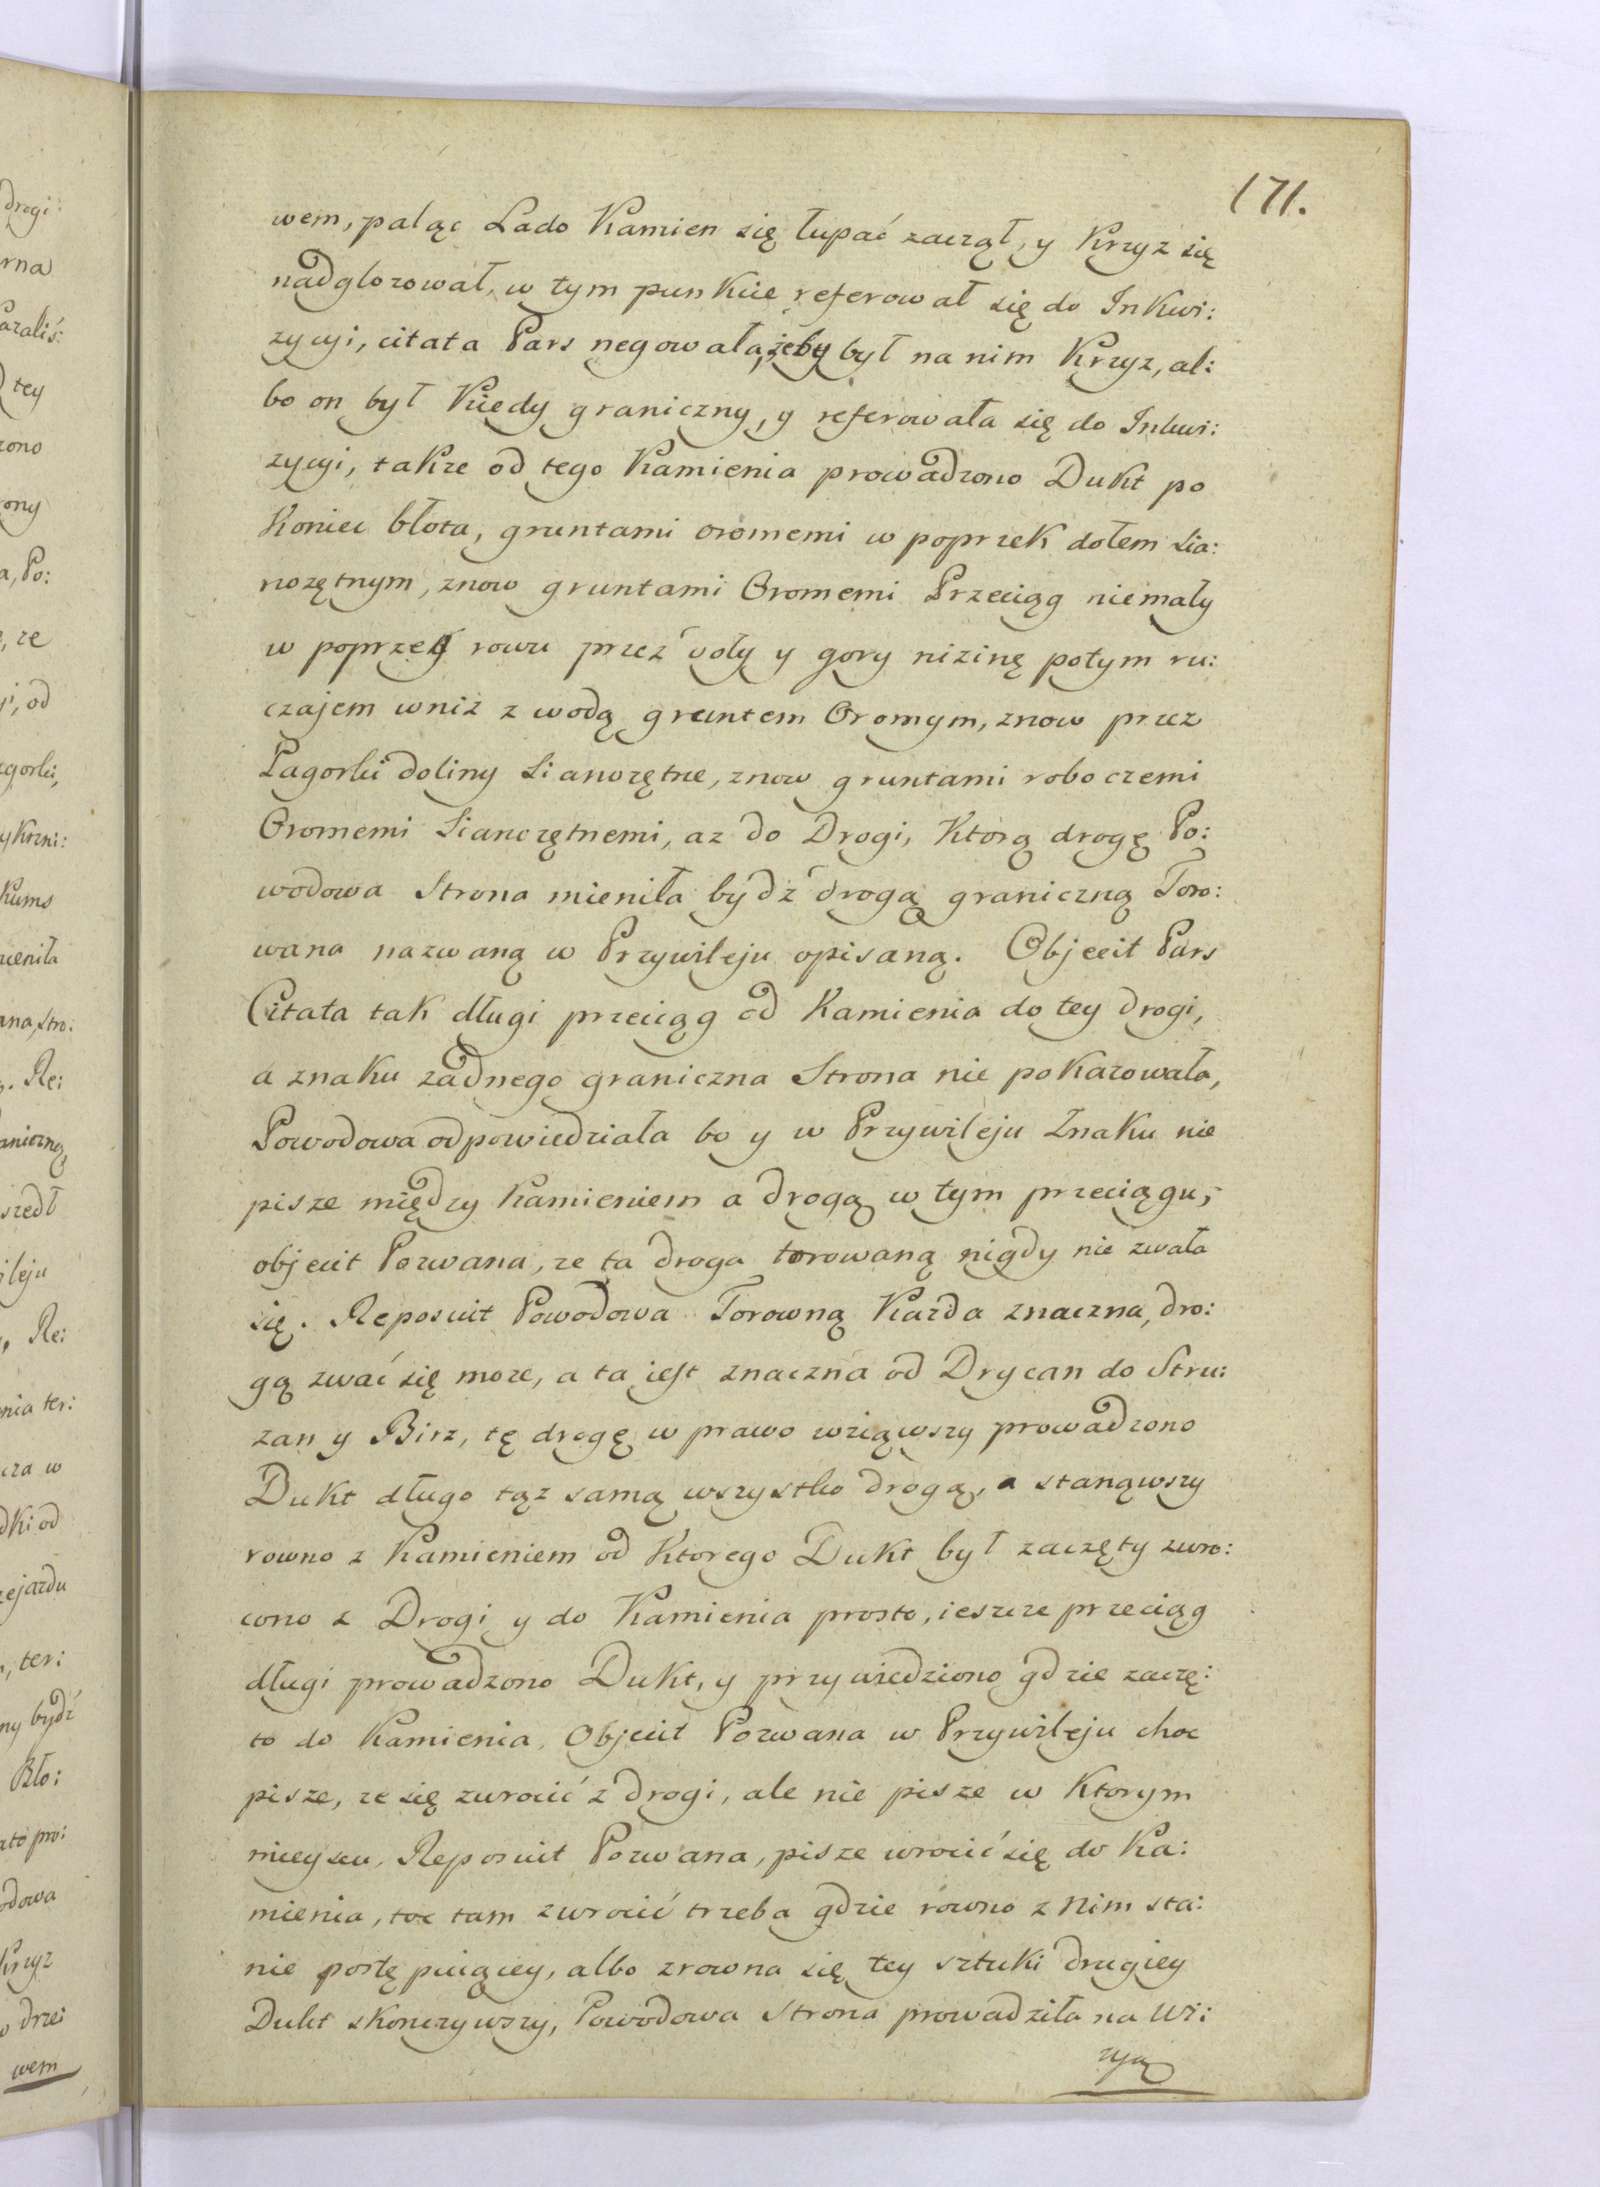 171.
wem, paląc Lado Kamien się łupać zaczął, y Krzyz się
nadglozował, w tym punkcie referował się do Inkwi:
zycyi, citata Pars negowała, żeby był na nim Krzyz, al:
bo on był Kiedy graniczny, y referowała się do Inkwi:
zycyi, takze od tego Kamienia prowadzono Dukt po
Koniec błota, gruntami oromemi w poprzek dołem sia:
nozętnym, znow gruntami Oromemi Przeciąg niemały
w poprzek rowu przez doły y gory nizinę potym ru:
czajem wniz z wodą gruntem Oromym, znow przez
Pagorki doliny Sianozętne, znow gruntami roboczemi
Oromemi Sianozętnemi, az do Drogi, Którą drogę Po:
wodowa Strona mieniła bydź drogą graniczną Toro:
wana nazwaną w Przywileju opisaną. Objecit Pars
Citata tak długi przeciąg od Kamienia do tey drogi,
a znaku zadnego graniczna Strona nie pokazowała,
Powodowa odpowiedziała bo y w Przywileju Znaku nie
pisze między Kamieniem a drogą w tym przeciągu,
objecit Pozwana, ze ta droga torowaną nigdy nie zwała
się. Reposuit Powodowa Torowną Kazda znaczna, dro:
gą zwać się moze, a ta jest znaczna od Drycan do Stru:
zan y Birz, tę drogę w prawo wziąwszy prowadzono
Dukt długo tąz samą wszystko drogą, a stanąwszy
rowno z Kamieniem od Ktorego Dukt był zaczęty zwro:
cono z Drogi y do Kamienia prosto, ieszcze przeciąg
długi prowadzono Dukt, y przywiedziono gdzie zaczę:
to do Kamienia. Objecit Pozwana w Przywileju choc
pisze, ze się zwrocić z drogi, ale nie pisze w Ktorym
mieyscu. Reposuit Pozwana, pisze wrocić się do Ka:
mienia, toc tam zwrocić trzeba gdzie rowno z Nim sta:
nie albo zrowna się tey sztuki drugiey
Dukt skonczywszy, Powodowa Strona prowadziła na Wi:
zyą